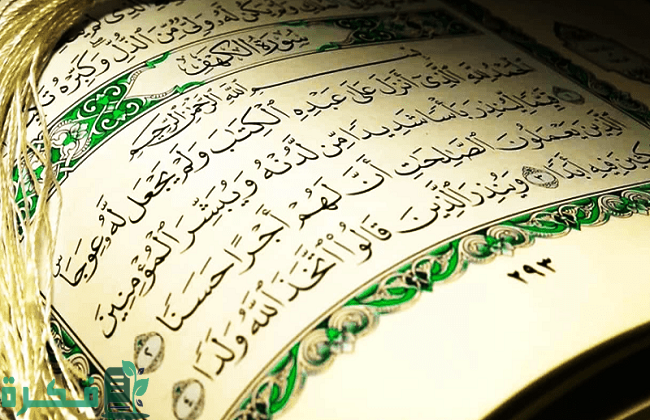 وَلِيٌّ مِّنَ ٱلذُّلِّ وَكَبِّرْهُ
سُورَةُ ٱلْكَهْفِ
ٱللَّهِ ٱلرَّحْمَٰنِ ٱلرَّحِيمِ
ٱلْحَمْدُ لِلَّهِ ٱلَّذِىٓ أَنزَلَ عَلَىٰ عَبْدِهِ ٱلْكِتَٰبَ وَلَمْ يَجْعَل لَّهُۥ عِوَجَاۜ ١
قَيِّمًا لِّيُنذِرَ بَأْسًا شَدِيدًا مِّن لَّدُنْهُ وَيُبَشِّرَ ٱلْمُؤْمِنِينَ
ٱلَّذِينَ يَعْمَلُونَ ٱلصَّٰلِحَٰتِ أَنَّ لَهُمْ أَجْرًا حَسَنًا ٢
فِيهِ أَبَدًا ٣ وَيُنذِرَ ٱلَّذِينَ قَالُوا۟ ٱتَّخَذَ ٱللَّهُ وَلَدًا ٤
٢٩٣
فكرة